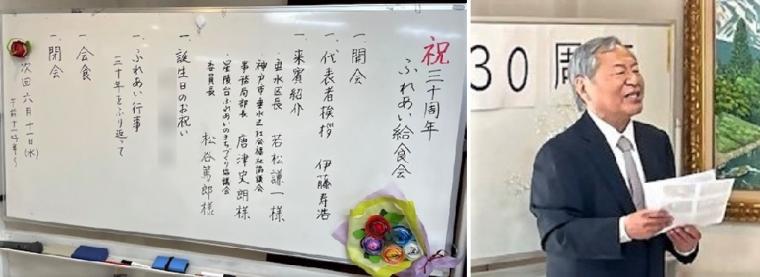 祝 三十周年
ふれあい給食会
一、開会
一、代表者挨拶 伊藤寿浩
一、来賓紹介
・垂水区長 若松謙一様
神戸市垂水区社会福祉協議会
事務局部長 唐津史朗様
・星陵台ふれあいのまちづくり協議会
委員長 松谷篤郎様
一、誕生日のお祝い
一、ふれあい行事
三十年をふり返って
一、会食
一、閉会
次回 六月十日(水)
午前十一時半〜
30周